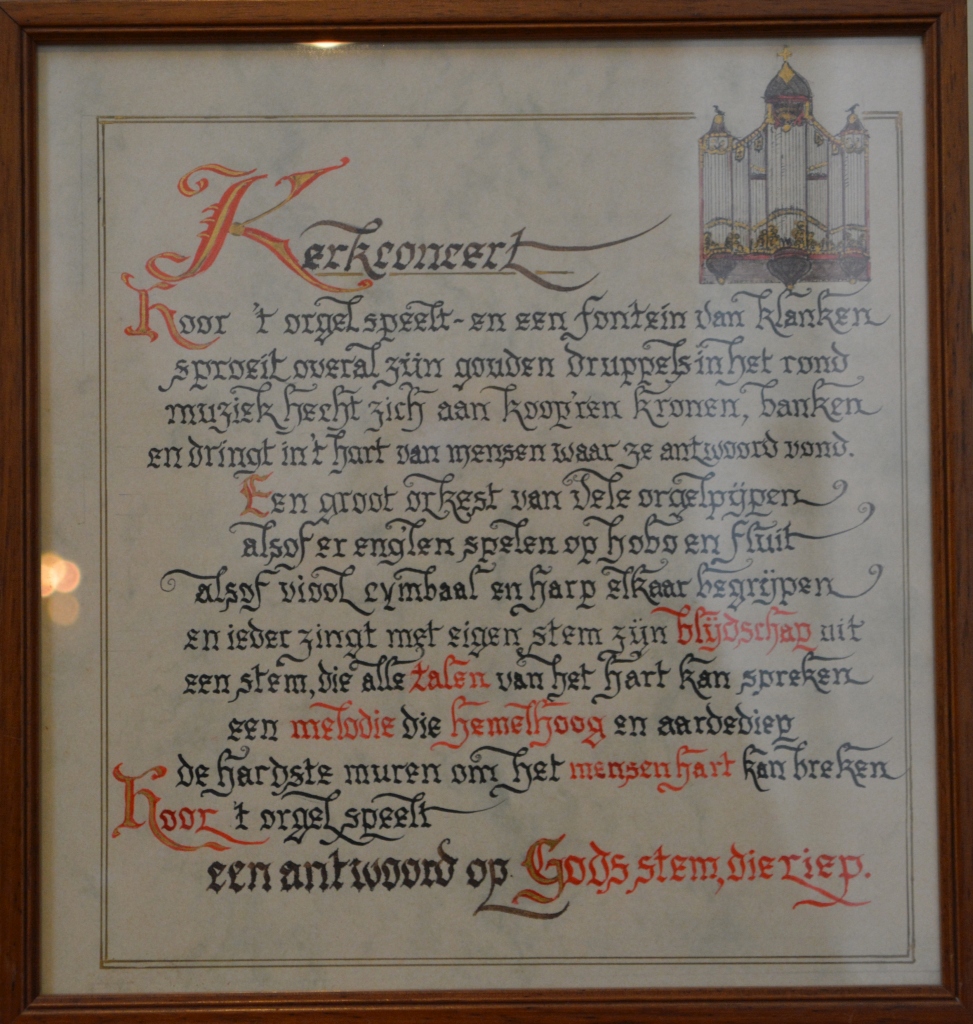 Kerkconcert
Hoor 't orgel speelt - en een fontein van klanken
sproeit overal zijn gouden druppels in het rond
muziek hecht zich aan koop'ren kronen, banken
en dringt in 't hart van mensen waar ze antwoord vond.
Een groot orkest van vele orgelpijpen
alsof er eng'len spelen op hobo en fluit
alsof viool cymbaal en harp elkaar begrijpen
en ieder zingt met eigen stem zijn blijdschap uit
een stem, die alle talen van het hart kan spreken
een melodie die hemelhoog en aardediep
de hardste muren om het mensenhart kan breken
Hoor 't orgel speelt
een antwoord op Gods stem, die riep.